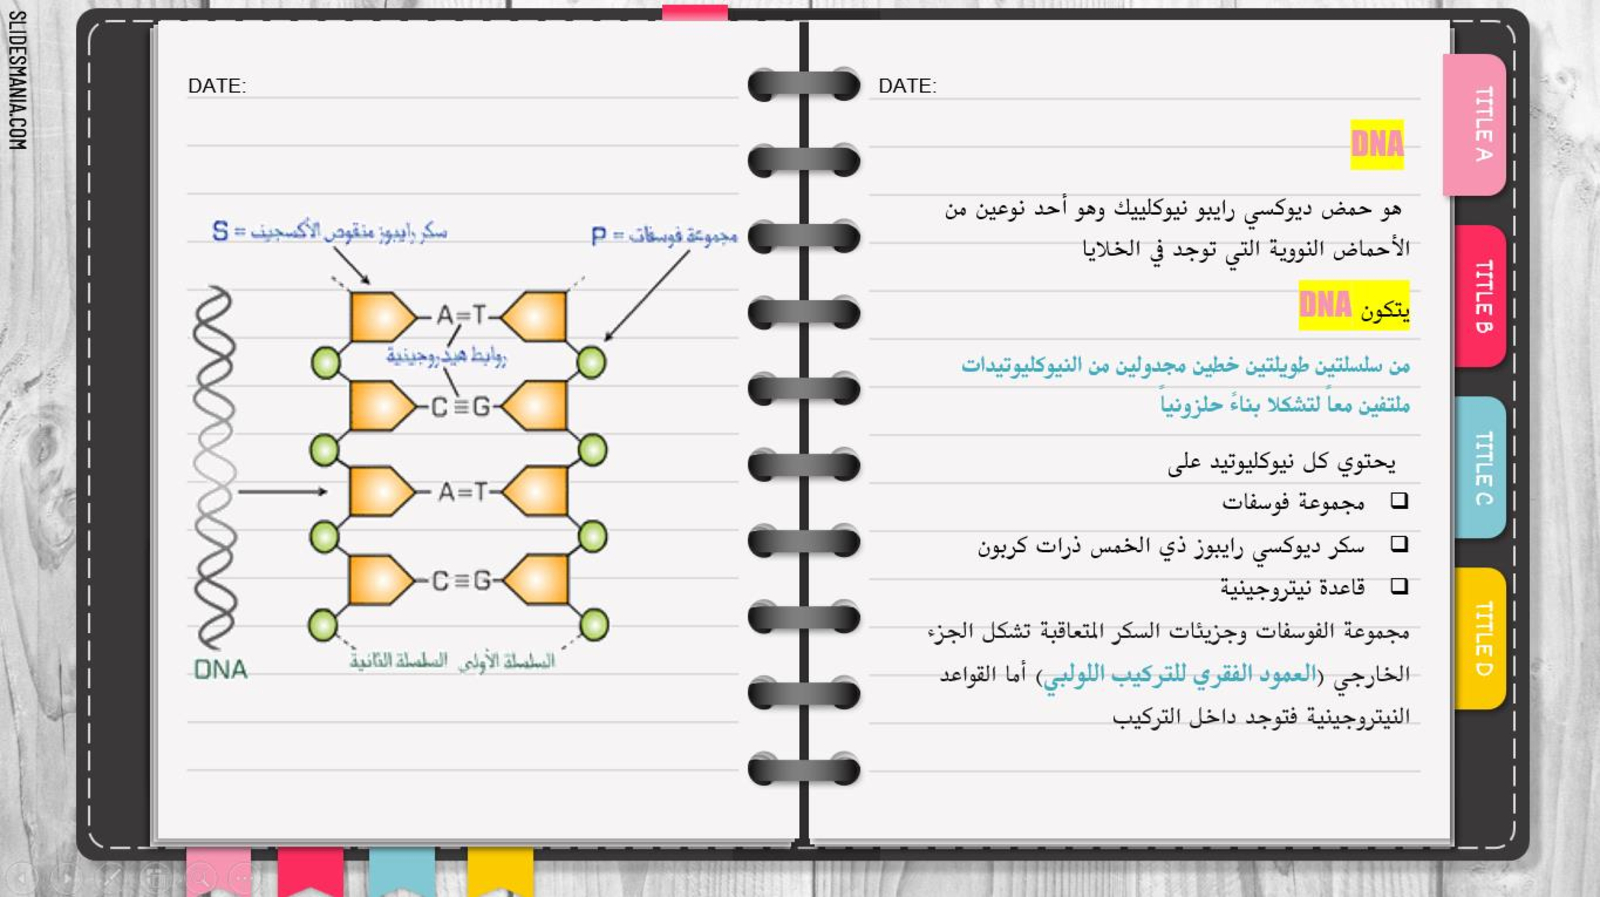 SLIDESMANIA.COM
DATE:
سكر رايبوز منقوص الأكسجين = S
مجموعة فوسفات = P
A=T
روابط هيدروجينية
C≡G
A=T
C≡G
السلسلة الأولى السلسلة الثانية
DNA
DATE:
DNA
هو حمض ديوكسي رايبو نيوكلييك وهو أحد نوعين من
الأحماض النووية التي توجد في الخلايا
يتكون DNA
من سلسلتين طويلتين خطين مجدولين من النيوكليوتيدات
ملتفين معاً لتشكلا بناءً حلزونياً
يحتوي كل نيوكليوتيد على
❑ مجموعة فوسفات
❑ سكر ديوكسي رايبوز ذي الخمس ذرات كربون
❑ قاعدة نيتروجينية
مجموعة الفوسفات وجزيئات السكر المتعاقبة تشكل الجزء
الخارجي (العمود الفقري للتركيب اللولبي) أما القواعد
النيتروجينية فتوجد داخل التركيب
TITLE A
TITLE B
TITLE C
TITLE D